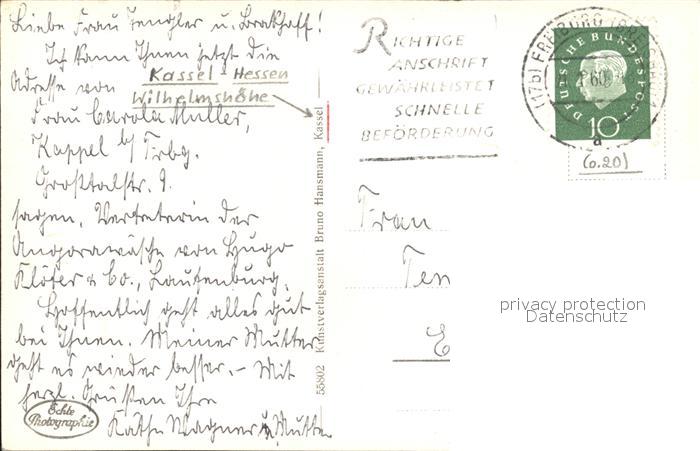 Liebe Frau Tengler u. Brakhoff!
Ich kann Ihnen jetzt die
Adresse von
Kassel - Hessen
Wilhelmshöhe
Frau Carola Müller,
Kappel b/ Frbg.
Großtalstr. 9.
sagen, Vertreterin der
Angorawäsche von Hugo
Klöfer & Co., Laufenburg.
Hoffentlich geht alles gut
bei Ihnen. Meiner Mutter
geht es wieder besser. – Mit
herzl. Grüßen Ihre
Käthe Wagner u. Mutter
Echte
Photographie
55802 Kunstverlagsanstalt Bruno Hansmann, Kassel
RICHTIGE
ANSCHRIFT
GEWÄHRLEISTET
SCHNELLE
BEFÖRDERUNG
(17b) FREIBURG (BREISGAU)
60
a
DEUTSCHE BUNDESPOST
10
(0.20)
Frau
Ten
privacy protection
Datenschutz